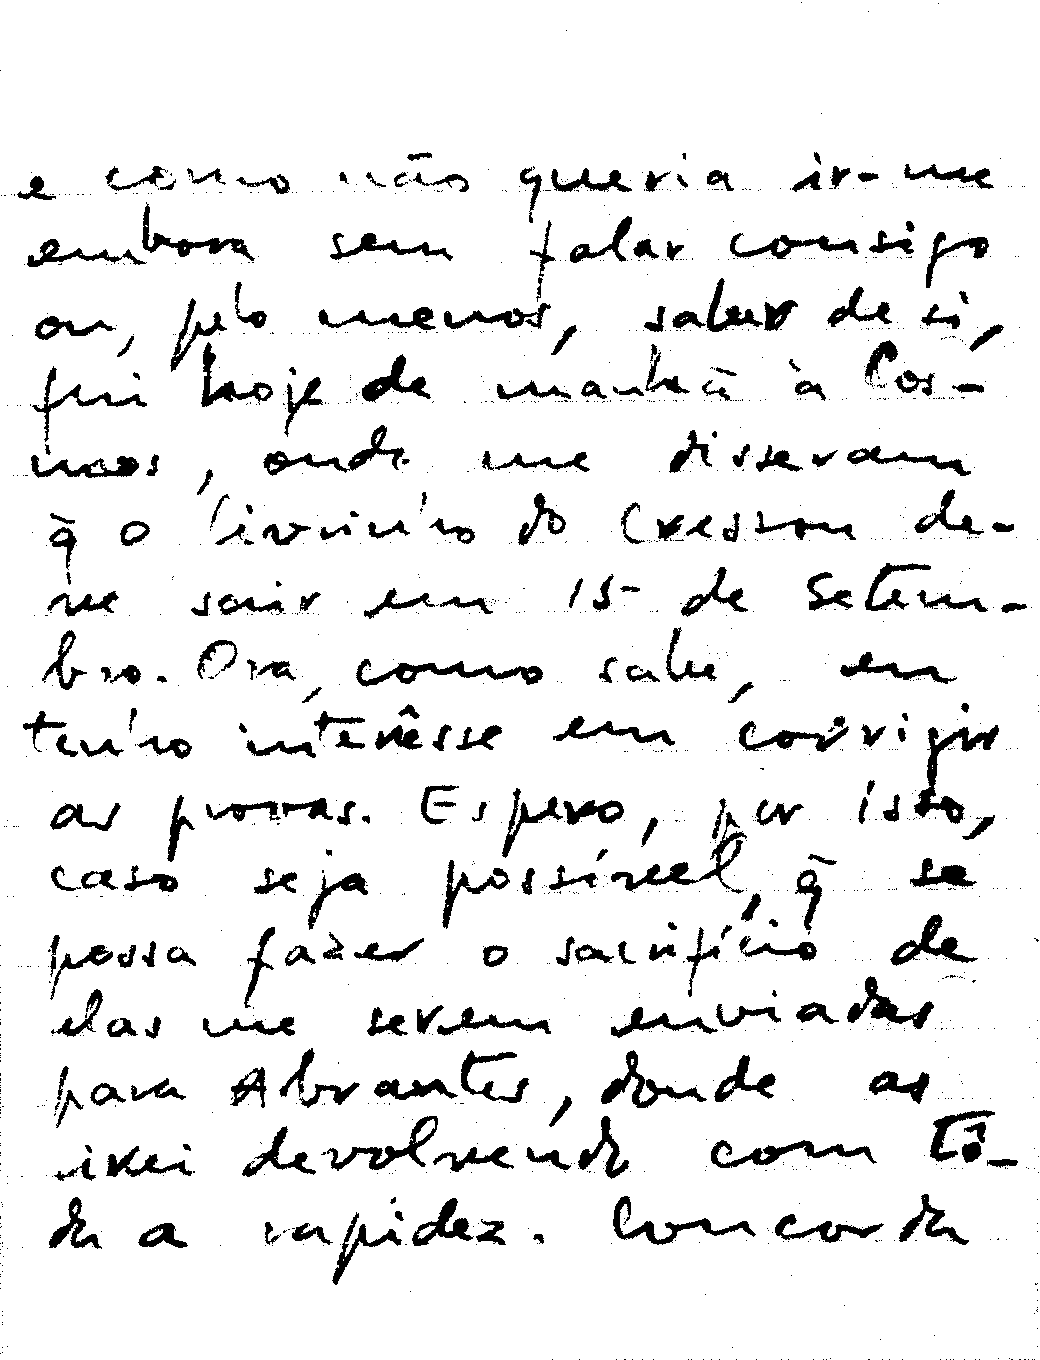 e como não queria ir-me
embora sem falar consigo
ou, pelo menos, saber de si,
fui hoje de manhã à Cos-
mos, onde me disseram
q̃ o livrinho do Cresson de-
ve sair em 15 de Setem-
bro. Ora, como sabe, eu
tenho interêsse em corrigir
as provas. Espero, por isso,
caso seja possível, q̃ se
possa fazer o sacrifício de
elas me serem enviadas
para Abrantes, donde as
irei devolvendo com tô-
da a rapidez. Concorda